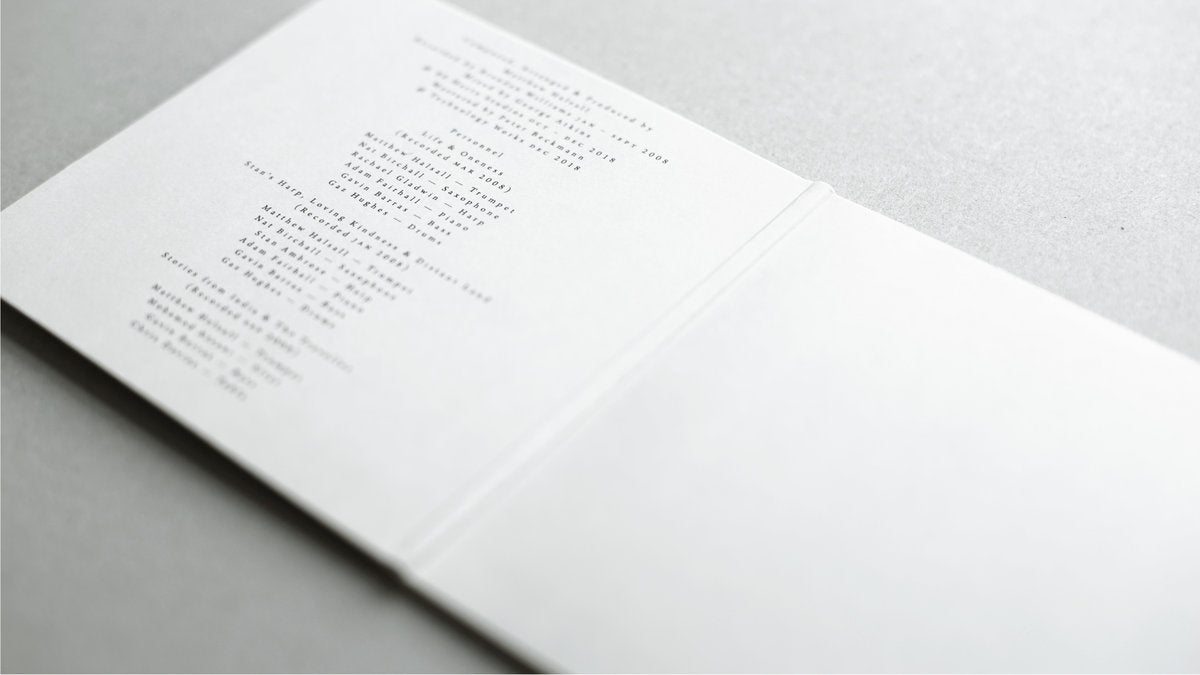 Composed, Arranged & Produced by
Matthew Halsall
Recorded by Brendan Williams JAN – SEPT 2008
Mixed by George Atkins
@ 80 Hertz Studios OCT – DEC 2018
Mastered by Peter Beckmann
@ Technology Works DEC 2018
Personnel
Life & Oneness
(Recorded MAR 2008)
Matthew Halsall — Trumpet
Nat Birchall — Saxophone
Rachael Gladwin — Harp
Adam Fairhall — Piano
Gavin Barras — Bass
Gaz Hughes — Drums
Stan's Harp, Loving Kindness & Distant Land
(Recorded JAN 2008)
Matthew Halsall — Trumpet
Nat Birchall — Saxophone
Stan Ambrose — Harp
Adam Fairhall — Piano
Gavin Barras — Bass
Gaz Hughes — Drums
Stories from India & The Traveller
(Recorded 2008)
Matthew Halsall — Trumpet
Mohamed
Gavin Barras — Bass
Chris